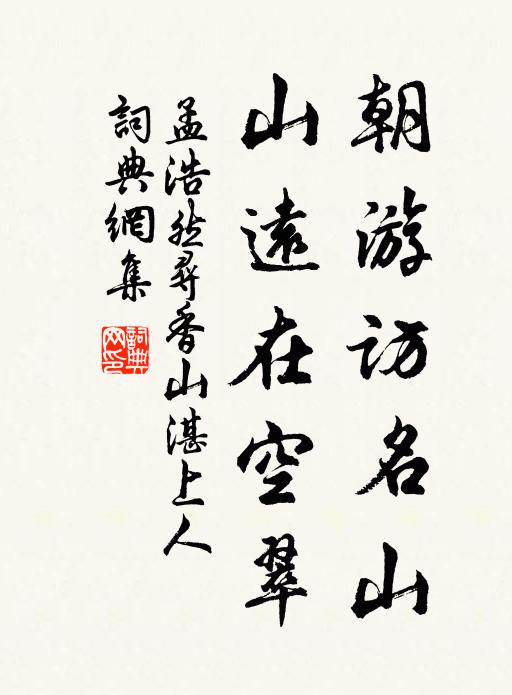 朝游訪名山
山遠在空翠
孟浩然尋香山湛上人
詞典網集
詞典网印